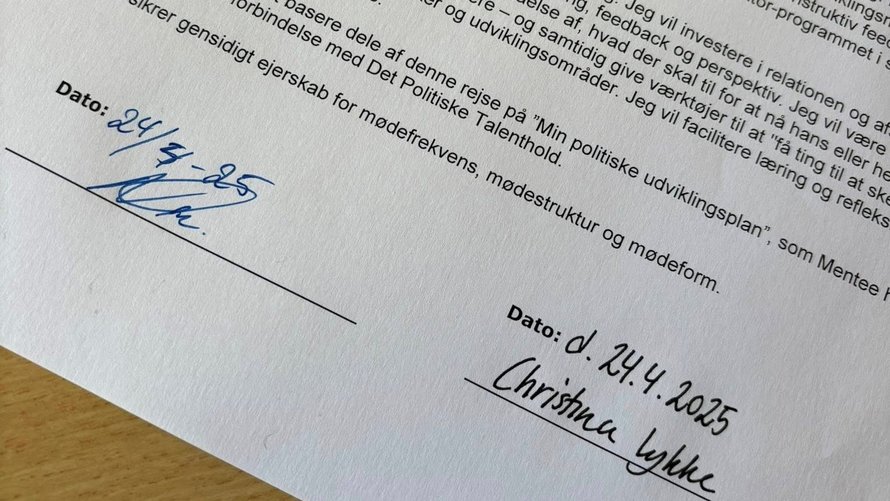 viklingsm
Jeg vil investere i relationen og af
nstruktiv feed
ng, feedback og perspektiv. Jeg vil være
tor-programmet i s
delse af, hvad der skal til for at nå hans eller he
ere – og samtidig give værktøjer til at "få ting til at ske
ker og udviklingsområder. Jeg vil facilitere læring og refleks
t basere dele af denne rejse på "Min politiske udviklingsplan", som Mentee h
forbindelse med Det Politiske Talenthold.
sikrer gensidigt ejerskab for mødefrekvens, mødestruktur og mødeform.
Dato: 24/4-25
Dato: d. 24.4.2025
Christina Lykke